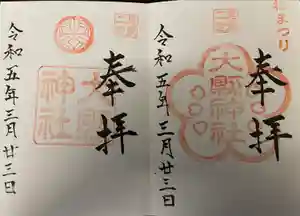 奉拝
大縣神社
令和五年三月廿三日
まつり
奉拝
大縣神社
令和五年三月廿三日